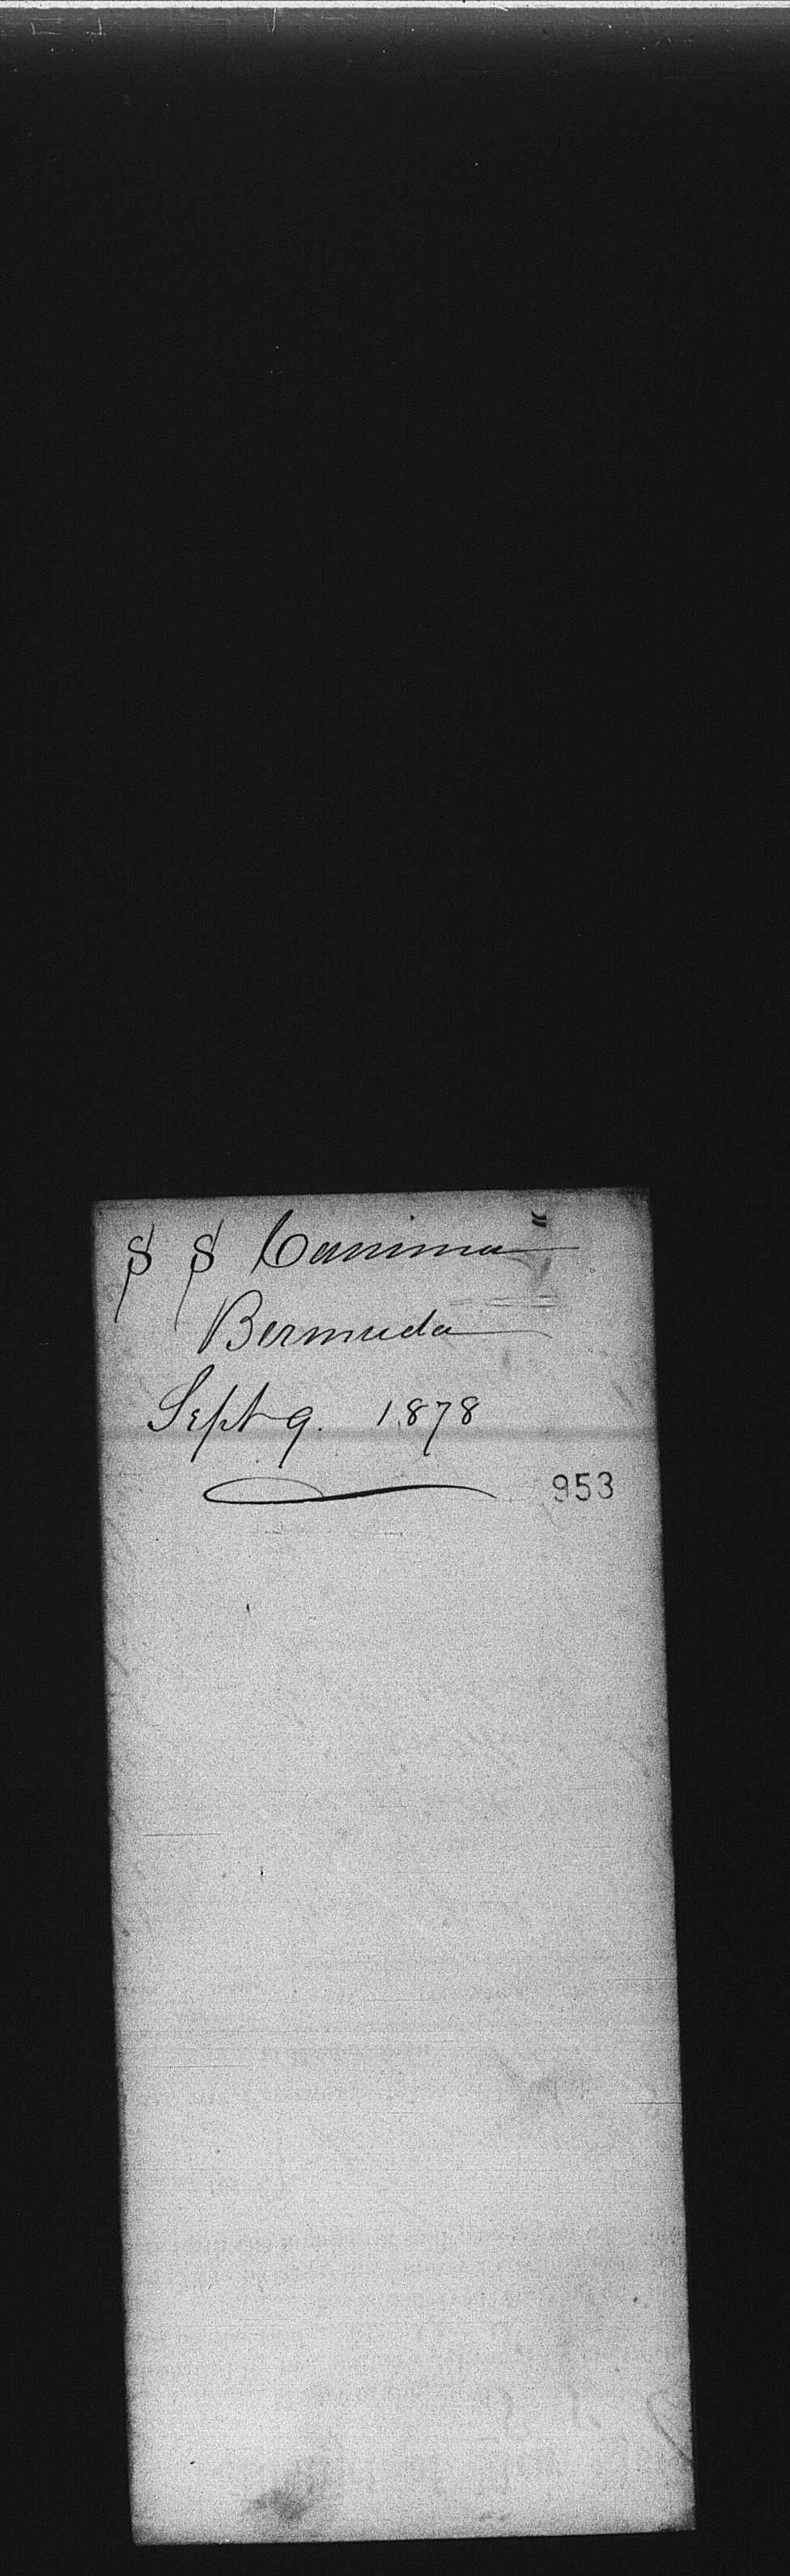 S S Canima"
Bermuda
Sept 9. 1878
953